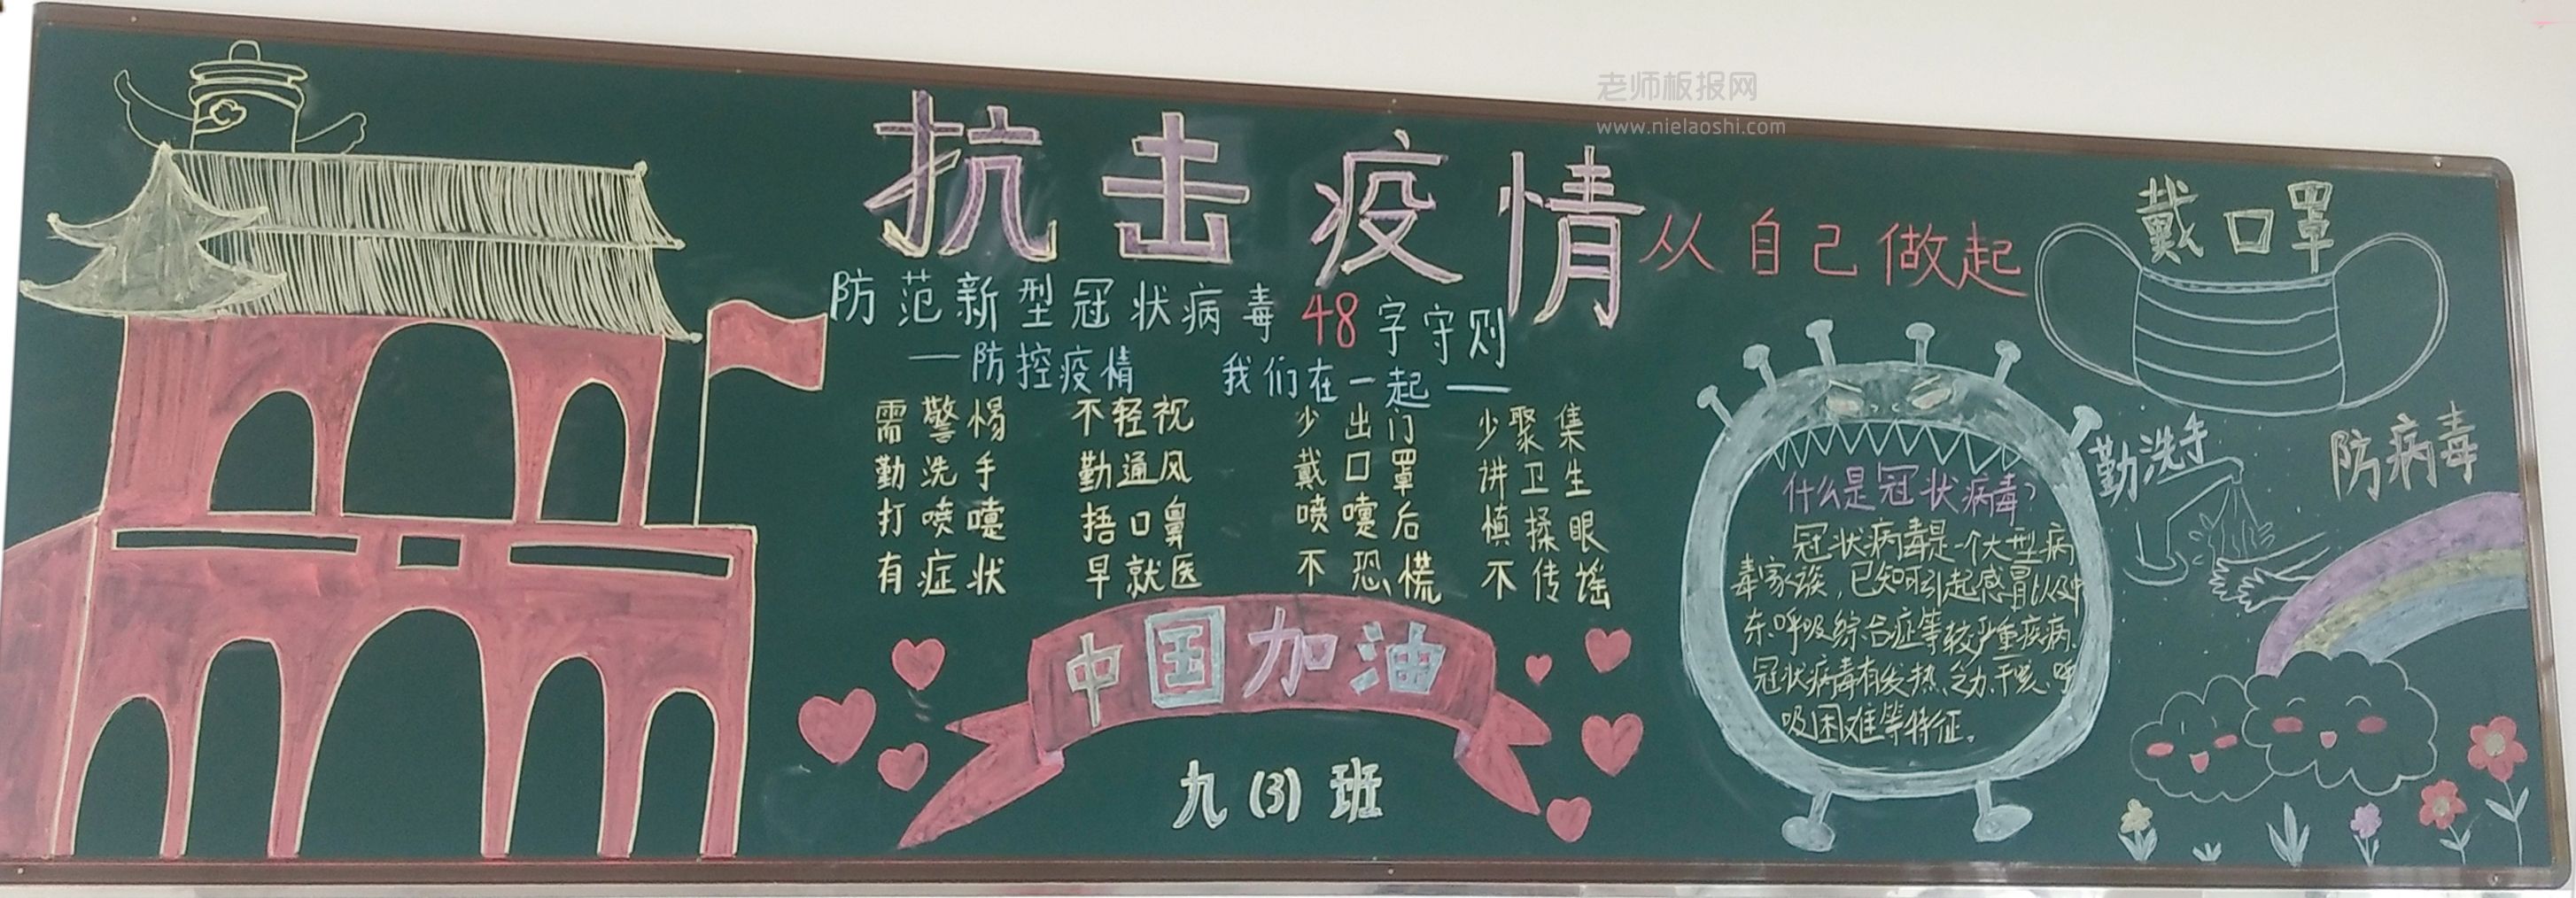 老师板报网
www.nielaoshi.com
抗击疫情
从自己做起
防范新型冠状病毒48字守则
—防控疫情 我们在一起—
需警惕 不轻视 少出门 少聚集
勤洗手 勤通风 戴口罩 讲卫生
打喷嚏 捂口鼻 喷嚏后 慎揉眼
有症状 早就医 不恐慌 不传谣
中国加油
九(3)班
什么是冠状病毒?
冠状病毒是一个大型病
毒家族,已知可引起感冒以及中
东呼吸综合症等较严重疾病.
冠状病毒有发热、乏力、干咳、呼
吸困难等特征。
戴口罩
勤洗手
防病毒